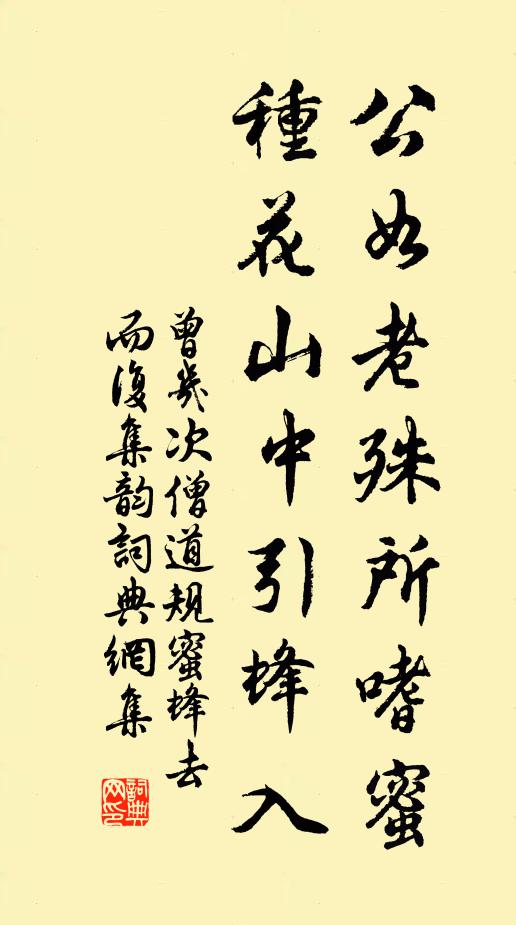 公如老殊所嗜蜜
種花山中引蜂入
曾幾次僧道規蜜蜂去
而復集韵詞典網集
詞典
网印